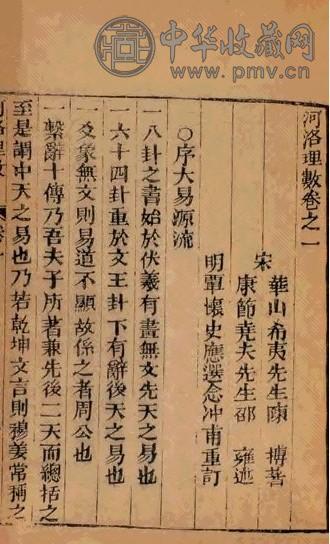 中华收藏网
www.pmv.cn
河洛理數卷之一
宋
華山希夷先生陳 摶著
康節堯夫先生邵 雍述
明覃懷史應選念冲甫重訂
○序大易源流
一八卦之書始於伏羲有畫無文先天之易也
一六十四卦重於文王卦下有辭後天之易也
一爻象無文則易道不顯故係之者周公也
一繫辭十傳乃吾夫子所著兼先後二天而總括之
至是謂中天之易也乃若乾坤文言則穆姜常稱之